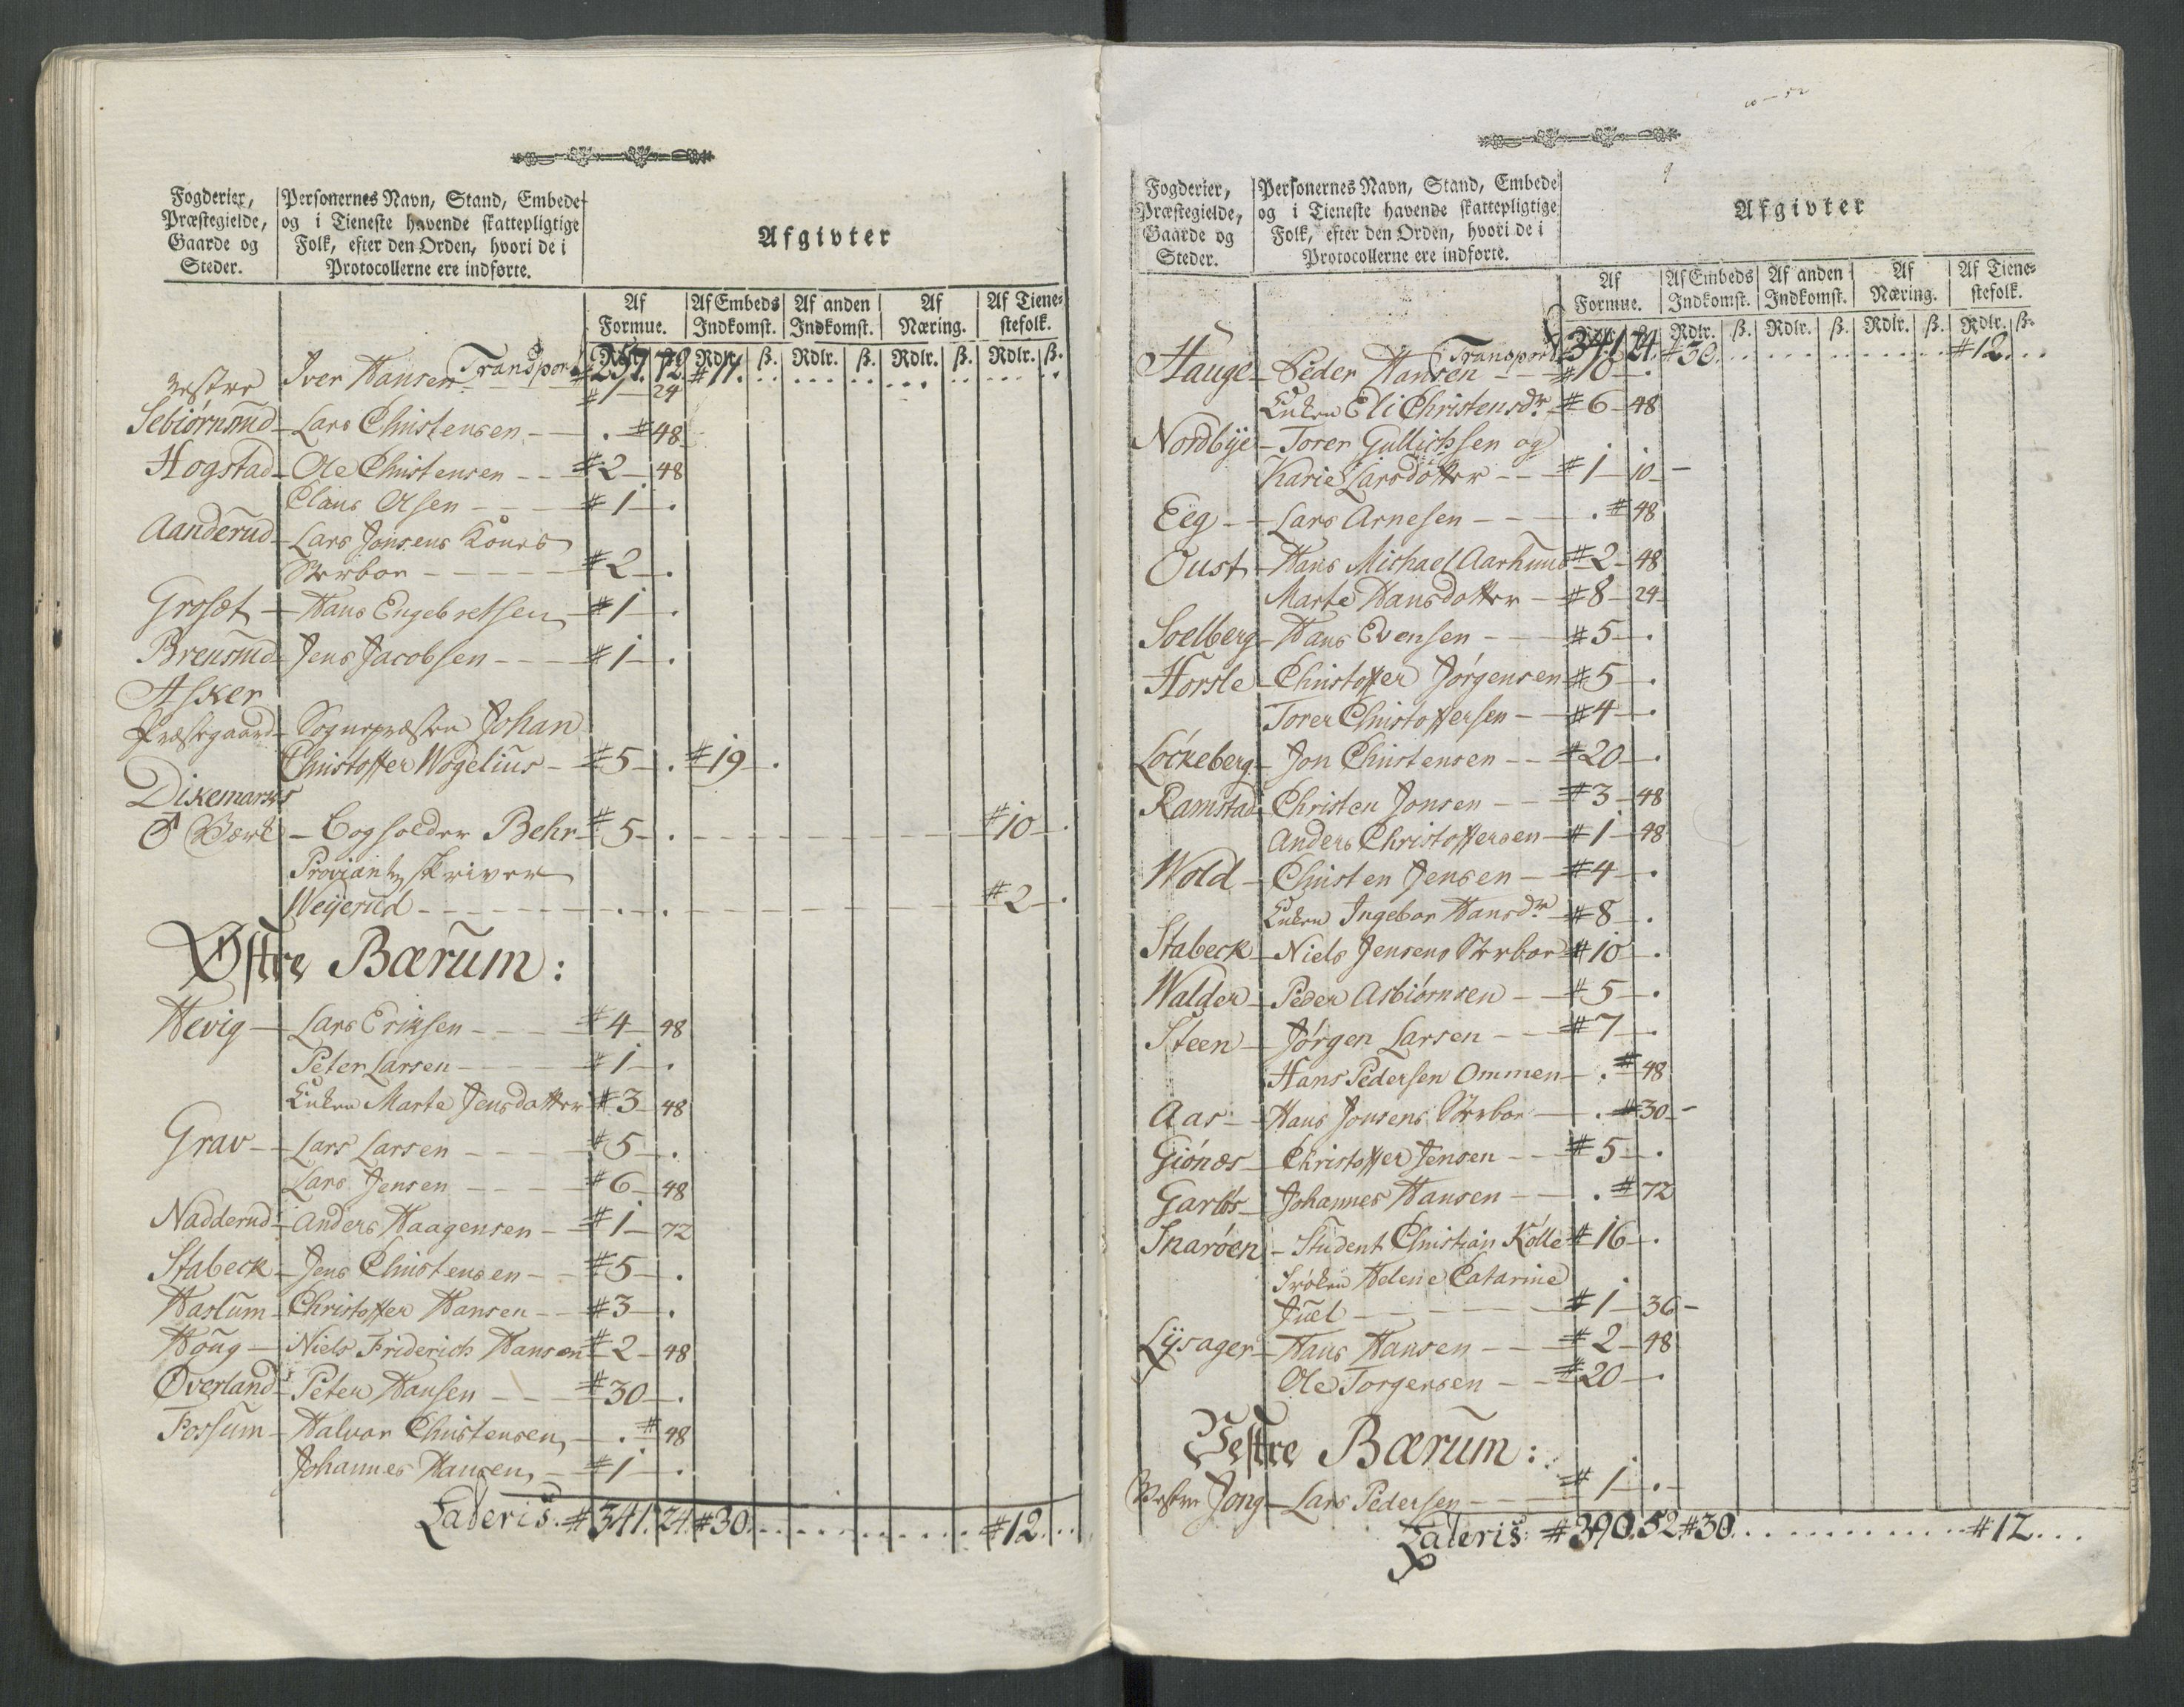 Fogderier,
Præstegielde,
Gaarde og
Steder.
Personernes Navn, Stand, Embede
og i Tieneste havende skattepligtige
Folk, efter den Orden, hvori de i
Protocollerne ere indførte.
Afgivter
Af Formue.
Af Embeds Indkomst.
Af anden Indkomst.
Af Næring.
Af Tienestefolk.
Rdlr. ß. Rdlr. ß. Rdlr. ß. Rdlr. ß.
Transport 257. 72 #11.
Vestre Iver Hansen #1 24
Sebiörnsrud Lars Christensen #48
Hogstad Ole Christensen #2 48
Claus Olsen #1 .
Aanderud Lars Jonsens Kones
Sterboe #2 .
Groset Hans Engebretsen #1 .
Brensrud Jens Jacobsen #1 .
Asker
Præstegaard Sognepræsten Johan
Christoffer Wogelius #5 . #19 .
Dikemarks
Værk Bogholder Behr #5 . #10 .
Proviantskriver
Weyerud . . #2 .
Østre Bærum:
Hevig Lars Eriksen #4 48
Peter Larsen #1 .
Enken Marte Jensdatter #3 48
Grav Lars Larsen #5 .
Lars Jensen #6 48
Nadderud Anders Haagensen #1 72
Stabeck Jens Christensen #5 .
Haslum Christoffer Hansen #3 .
Høug Niels Friderich Hansen #2 48
Overland Peter Hansen #30 .
Fossum Halvor Christensen . #48
Johannes Hansen #1 .
Lateris #341. 24. #30. #12.
Fogderier,
Præstegielde,
Gaarde og
Steder.
Personernes Navn, Stand, Embede
og i Tieneste havende skattepligtige
Folk, efter den Orden, hvori de i
Protocollerne ere indførte.
Afgivter
Af Formue.
Af Embeds Indkomst.
Af anden Indkomst.
Af Næring.
Af Tienestefolk.
Rdlr. ß. Rdlr. ß. Rdlr. ß. Rdlr. ß.
Transport 341 24. #30. #12.
Hauge Peder Hansen #10 .
Enken Eli Christensdr #6 48
Nordbye Torer Gullichsen og
Karie Larsdotter #1 10
Eeg Lars Arnesen . #48
Oust Hans Michael Aarhuus #2 48
Marte Hansdotter #8 24
Soelberg Hans Evensen #5 .
Horsle Christoffer Jørgensen #5 .
Torer Christoffersen #4 .
Löckeberg Jon Christensen #20 .
Ramstad Christen Jonsen #3 48
Anders Christoffersen #1 48
Wold Christen Jensen #4 .
Enken Ingebor Hansdr #8 .
Stabeck Niels Jensens Sterboe #10 .
Walder Peder Asbiörnsen #5 .
Steen Jørgen Larsen #7 .
Hans Pedersen Ommen . #48
Aas Hans Jonsens Sterboe . #30
Giönæs Christoffer Jensen #5 .
Garlös Johannes Hansen . #72
Snaröen Student Christian Kölle #16 .
Frøken Helene Catarine
Juel #1 36
Lysager Hans Hansen #2 48
Ole Torgersen #20 .
Vestre Bærum:
Vestre Jong Lars Pedersen #1 .
Lateris: #390. 52 #30. #12.